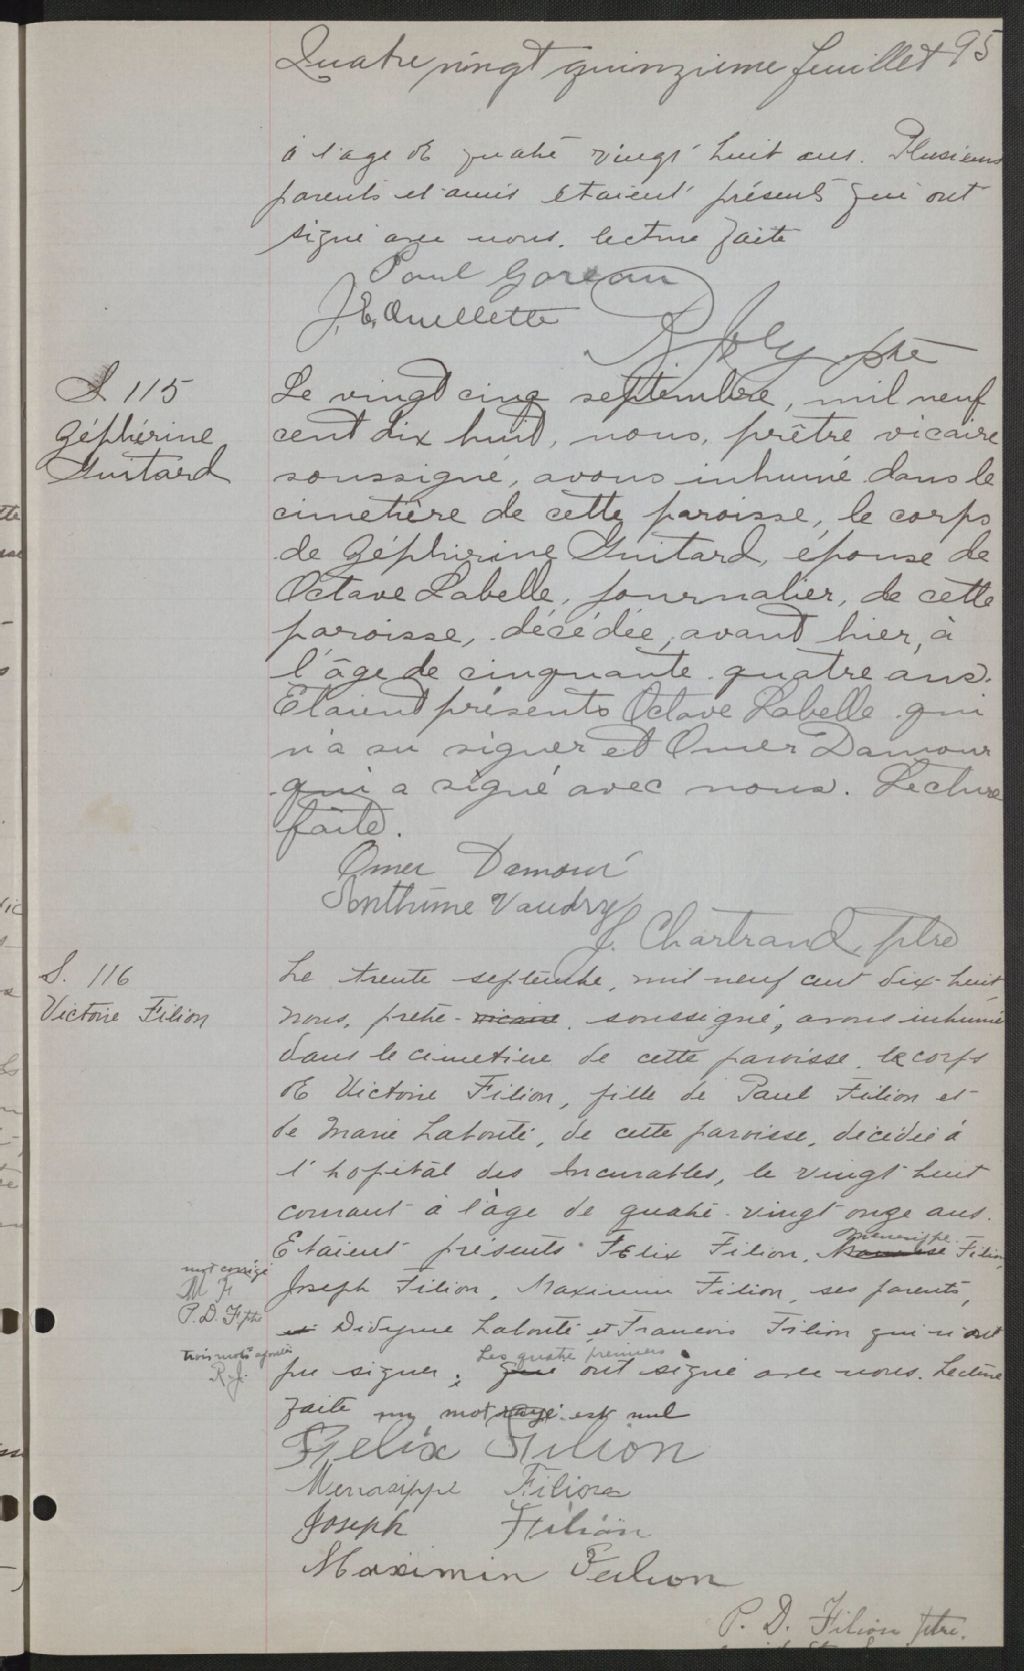 Quatre vingt quinzieme feuillet 95
à l'age de quatre vingt huit ans. Plusieurs
parents et amis étaient présents qui ont
signé avec nous. lecture faite
Paul Goreau
J. E. Ouellette
R. Joly ptre
S 115
Zéphirine
Guitard
Le vingt cinq septembre, mil neuf
cent dix huit, nous, prêtre vicaire
soussigné, avons inhumé dans le
cimetière de cette paroisse, le corps
de Zéphirine Guitard, épouse de
Octave Labelle, journalier, de cette
paroisse, décédée, avant hier, à
l'âge de cinquante quatre ans.
Etaient présents Octave Labelle qui
n'a su signer et Omer Damour
qui a signé avec nous. Lecture
faite.
Omer Damour
Anthime Vaudry
J. Chartrand, ptre
S. 116
Victoire Filion
Le trente septembre, mil neuf cent dix-huit,
nous, prêtre vicaire soussigné, avons inhumé
dans le cimetière de cette paroisse le corps
de Victoire Filion, fille de Paul Filion et
de Marie Labonté, de cette paroisse, décédée à
l'hopital des Incurables, le vingt huit
courant à l'âge de quatre vingt onze ans.
Etaient présents Félix Filion, Menesippe Filion,
mot corrigé
M F
P. D. F ptre
Joseph Filion, Maximin Filion, ses parents,
et Didyme Labonté et Francois Filion qui n'ont
trois mots ajoutés
R. J.
pu signer; Les quatre premiers qui ont signé avec nous. Lecture
faite un mot rayé est nul
Felix Filion
Menasippe Filion
Joseph Filion
Maximin Filion
P. D. Filion ptre.